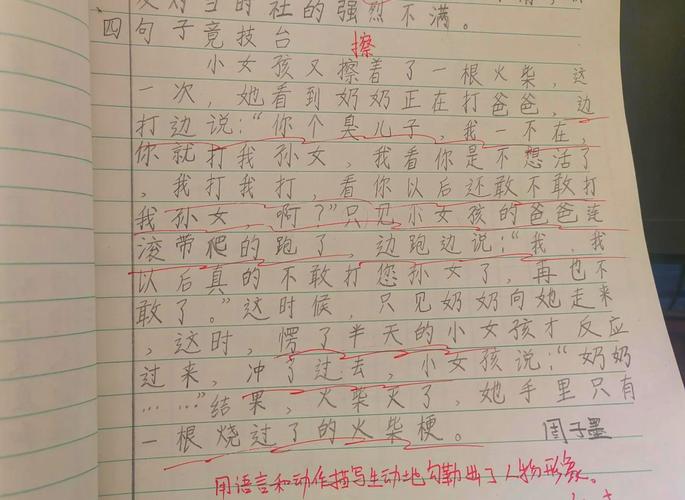 对当的社的强烈不满。
四 句子竞技台
擦
小女孩又擦着了一根火柴，这
一次，她看到奶奶正在打爸爸，边
打边说：“你个臭儿子，我一不在，
你就打我孙女，我看你是不想活了
，我打我打，看你以后还敢不敢打
我孙女，啊？”只见小女孩的爸爸连
滚带爬的跑了，边跑边说：“我，我
以后真的不敢打您孙女了，再也不
敢了。”这时候，只见奶奶向她走来
，这时，愣了半天的小女孩才反应
过来，冲了过去，小女孩说：“奶奶
……”结果，火柴灭了，她手里只有
一根烧过了的火柴梗。 周子墨
用语言和动作描写生动地勾勒出了人物形象。